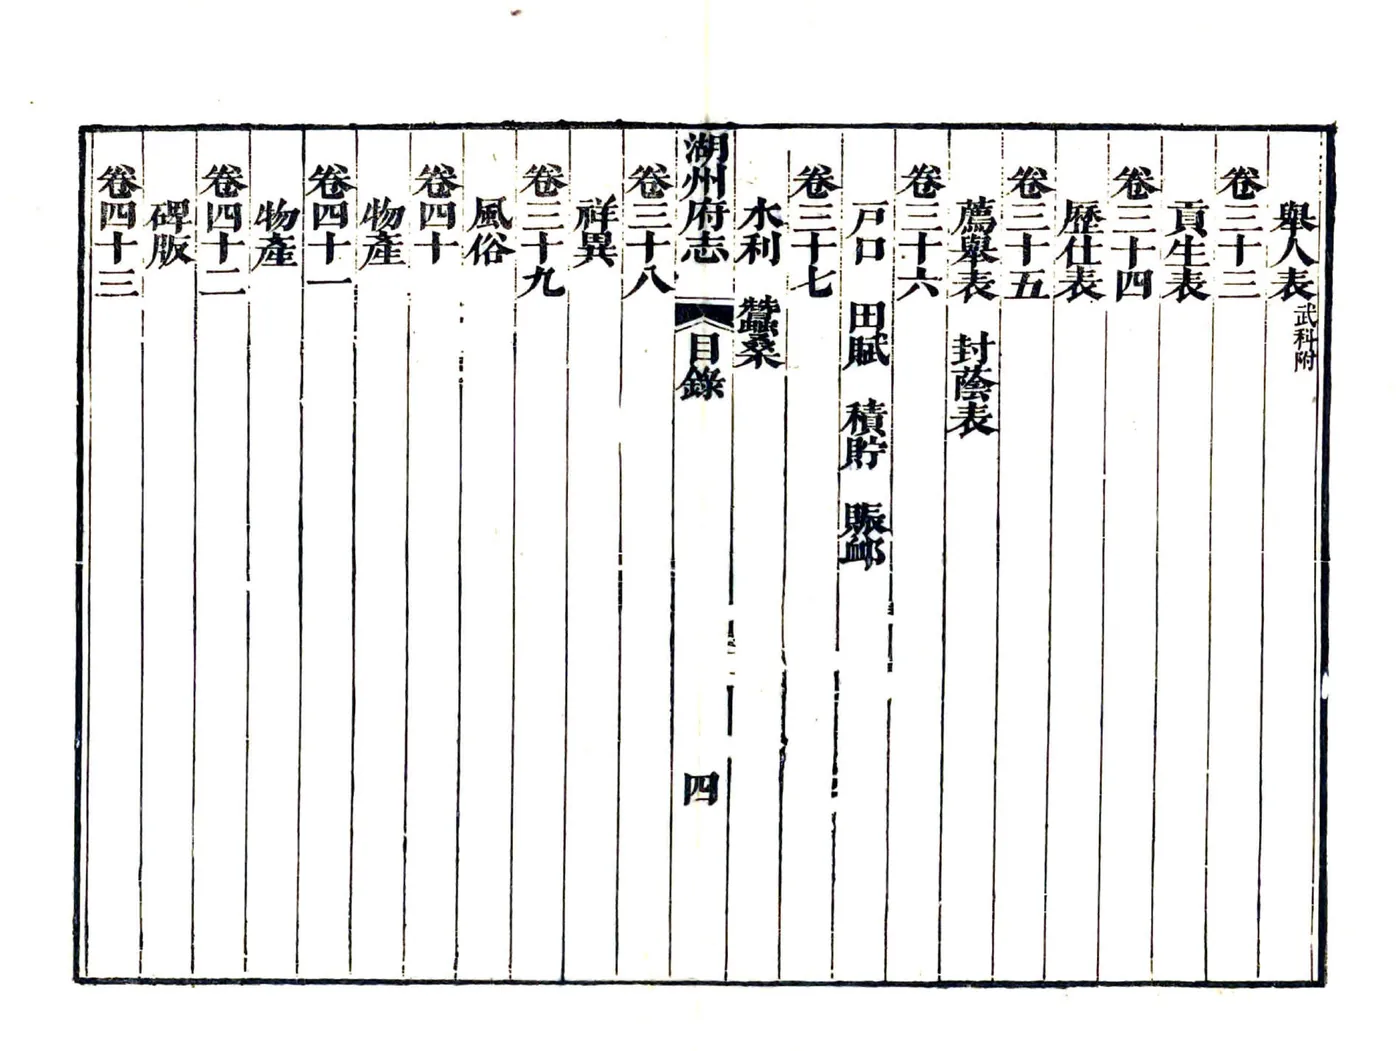 舉人表武科附
卷三十三
貢生表
卷三十四
歷仕表
卷三十五
薦舉表 封蔭表
卷三十六
戸口 田賦 積貯 賑䘏
卷三十七
水利 蠶桑
湖州府志 目錄 四
卷三十八
祥異
卷三十九
風俗
卷四十
物產
卷四十一
物產
卷四十二
碑版
卷四十三